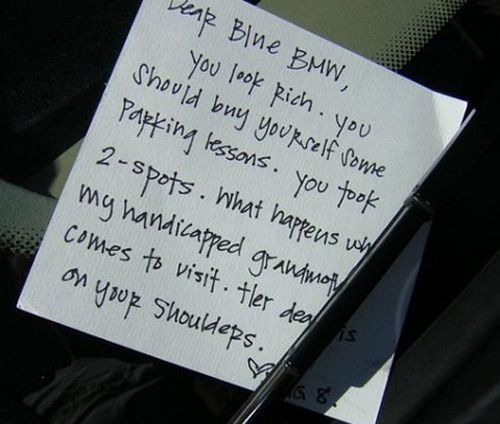 Dear Blue BMW,
You look rich. You
should buy yourself some
parking lessons. You took
2-spots. What happens
my handicapped
comes to visit. Her is
on your shoulders.
♡ 8.